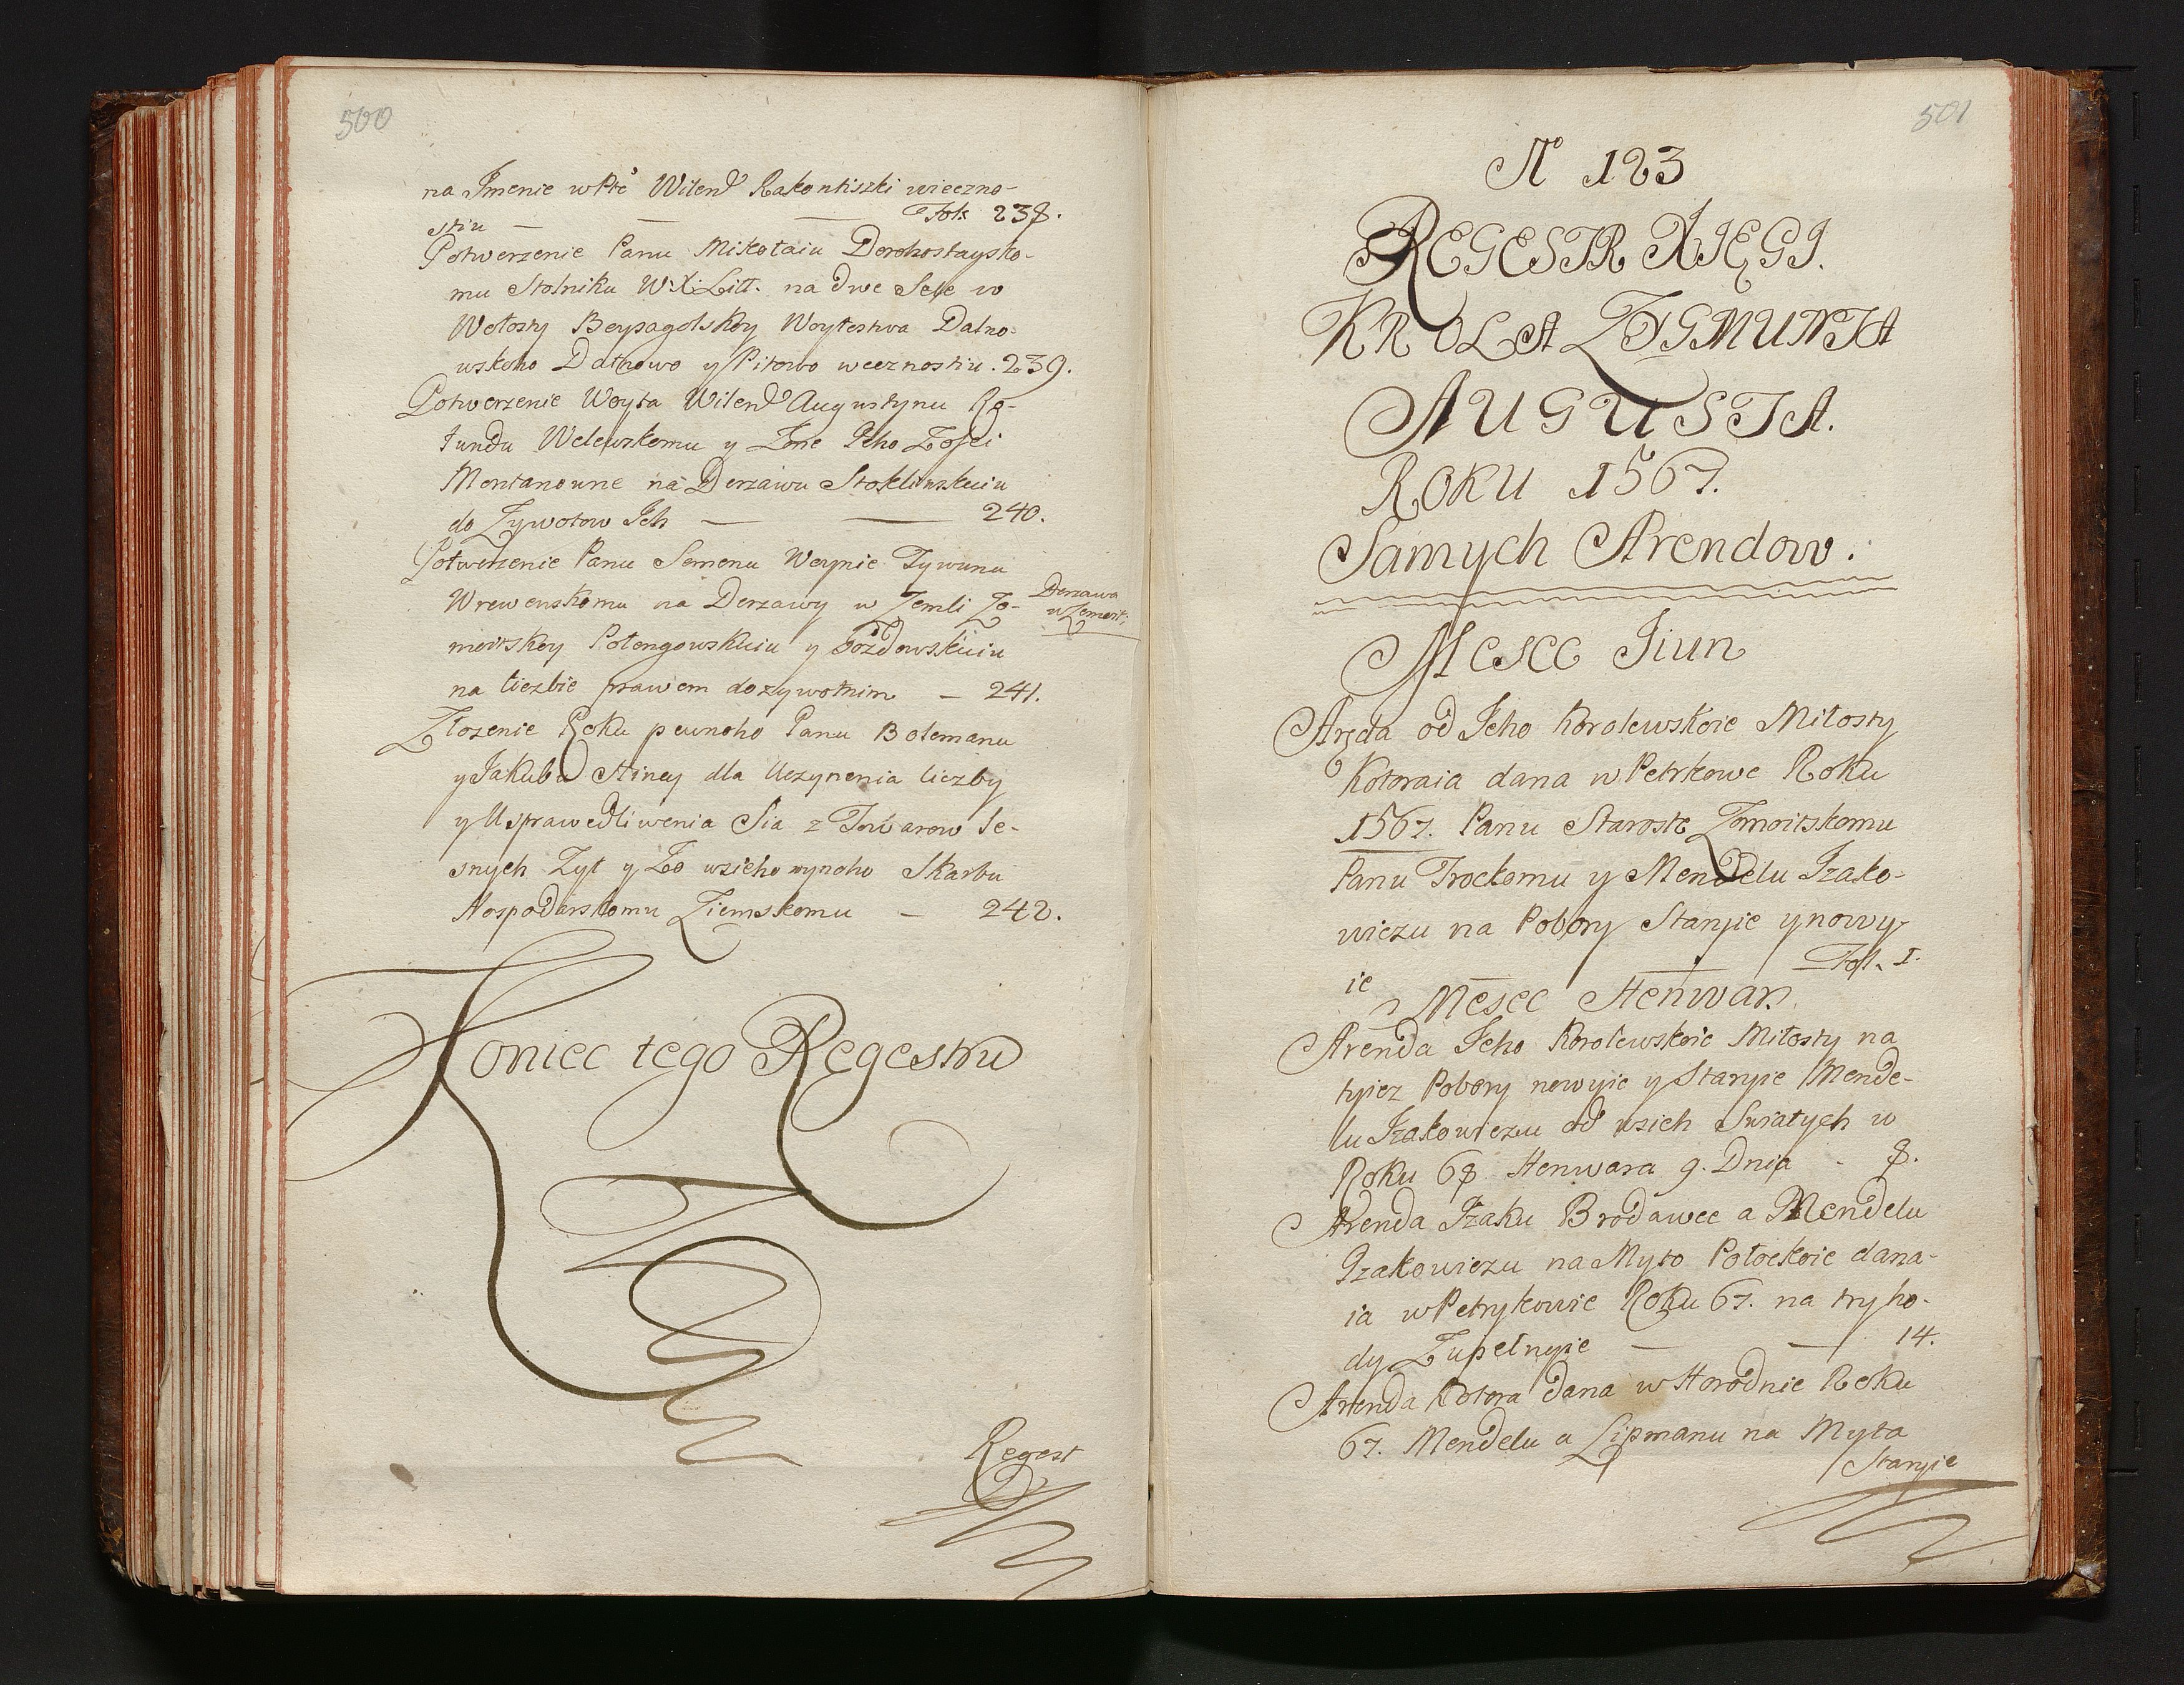 500
na Jmenie w Pte Wilend Rakontiszki wieczno-
stiu — — — Fol: 238.
Potwerzenie Panu Mikołaiu Dorohostaysko-
mu Stolniku W: X: Litt. na dwe Sele w
Wołosty Beysagolskoy Woytestwa Datno-
wskoho Datnowo y Pitowo weeznostiu. 239.
Potwerzenie Woyta Wilend Augustynu Ro-
tundu Welewskomu y Żone Jeho Zofei
Montanowne na Derzawu Stokliwskuiu
do Zywotow Jch — — 240.
Potwerzenie Panu Semenu Woynie Tywunu
Wrewenskomu na Derzawy w Zemli Żo-
moitskoy Potongowskuiu y Gozdowskuiu
na liczbie prawem dozywotnim — 241.
Derzawa
w Żemoit:
Złozenie Roku pewnoho Panu Bolemanu
y Jakubu Stiney dla Uczynenia liczby
y Usprawedliwenia Sia z Towarow Le-
snych Zyt y Zo wsieho wynoho Skarbu
Hospodarskomu Ziemskomu — 242.
Koniec tego Regestru
Regest
501
N 123
REGESTR XIĘGI.
KROLA ZYGMUNTA
AUGUSTA.
ROKU 1567.
Samych Arendow.
Mesec Iiun
Aręda od Jeho Korolewskoie Miłosty
Kotoraia dana w Petrkowe Roku
1567. Panu Staroste Żomoitskomu
Panu Trockomu y Mendelu Izako-
wiczu na Pobory Staryie y nowy-
ie — — Fol. I.
Mesec Henwar.
Arenda Jeho Korolewskoie Miłosty na
tyiez Pobory nowyie y Staryie Mende-
lu Izakowiczu od wsich Swiatych w
Roku 68. Henwara 9. Dnia - 8.
Arenda Izaku Brodawce a Mendelu
Izakowiczu na Myto Połockoie dana-
ia w Petrykowie Roku 67. na try ho-
dy Zupełnyie — — 14.
Arenda Kotora dana w Horodnie Roku
67. Mendelu a Lipmanu na Myta
Staryie